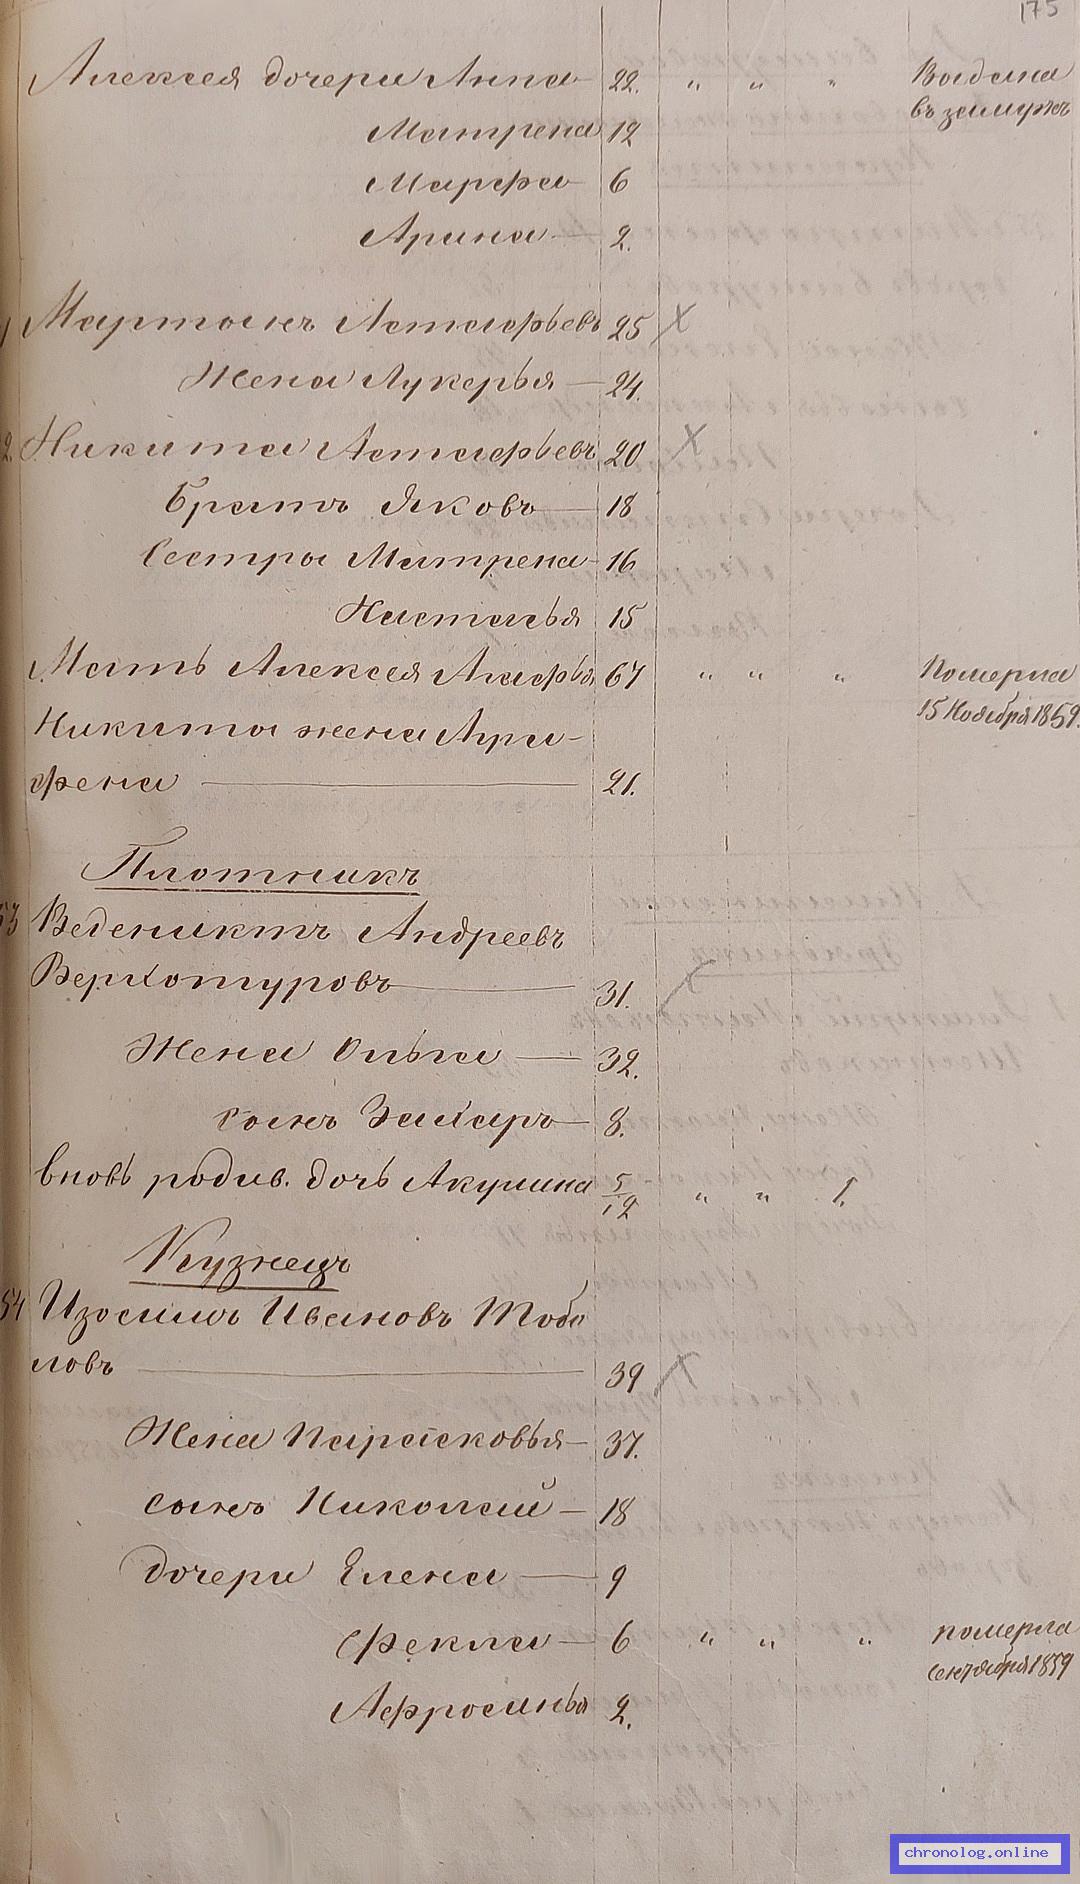 175
Алексея дочери Анна 22. " " " Выдана
въ замужъ
Матрена 12
Марфа 6
Арина 2.
Мартынъ Астафьевъ 25
Жена Лукерья 24.
2. Никита Астафьевъ 20
Братъ Яковъ 18
Сестры Матрена 16
Настасья 15
Мать Алексея Агафья 67 " " " Померла
15 Ноября 1859.
Никиты жена Агри-
фена 21.
Плотникъ
53 Веденикть Андреевъ
Верхотуровъ 31.
Жена Ольга 32.
сынъ Захаръ 8.
вновь родив. дочь Акулина 5/12 " " 1.
Кузнецъ
54 Изосимъ Ивановъ Тобо
ловъ 39
Жена Парасковья 37.
сынъ Николай 18
дочери Елена 9
Фекла 6 " " " померла
Сентября 1859
Афросинья 2.
chronolog.online